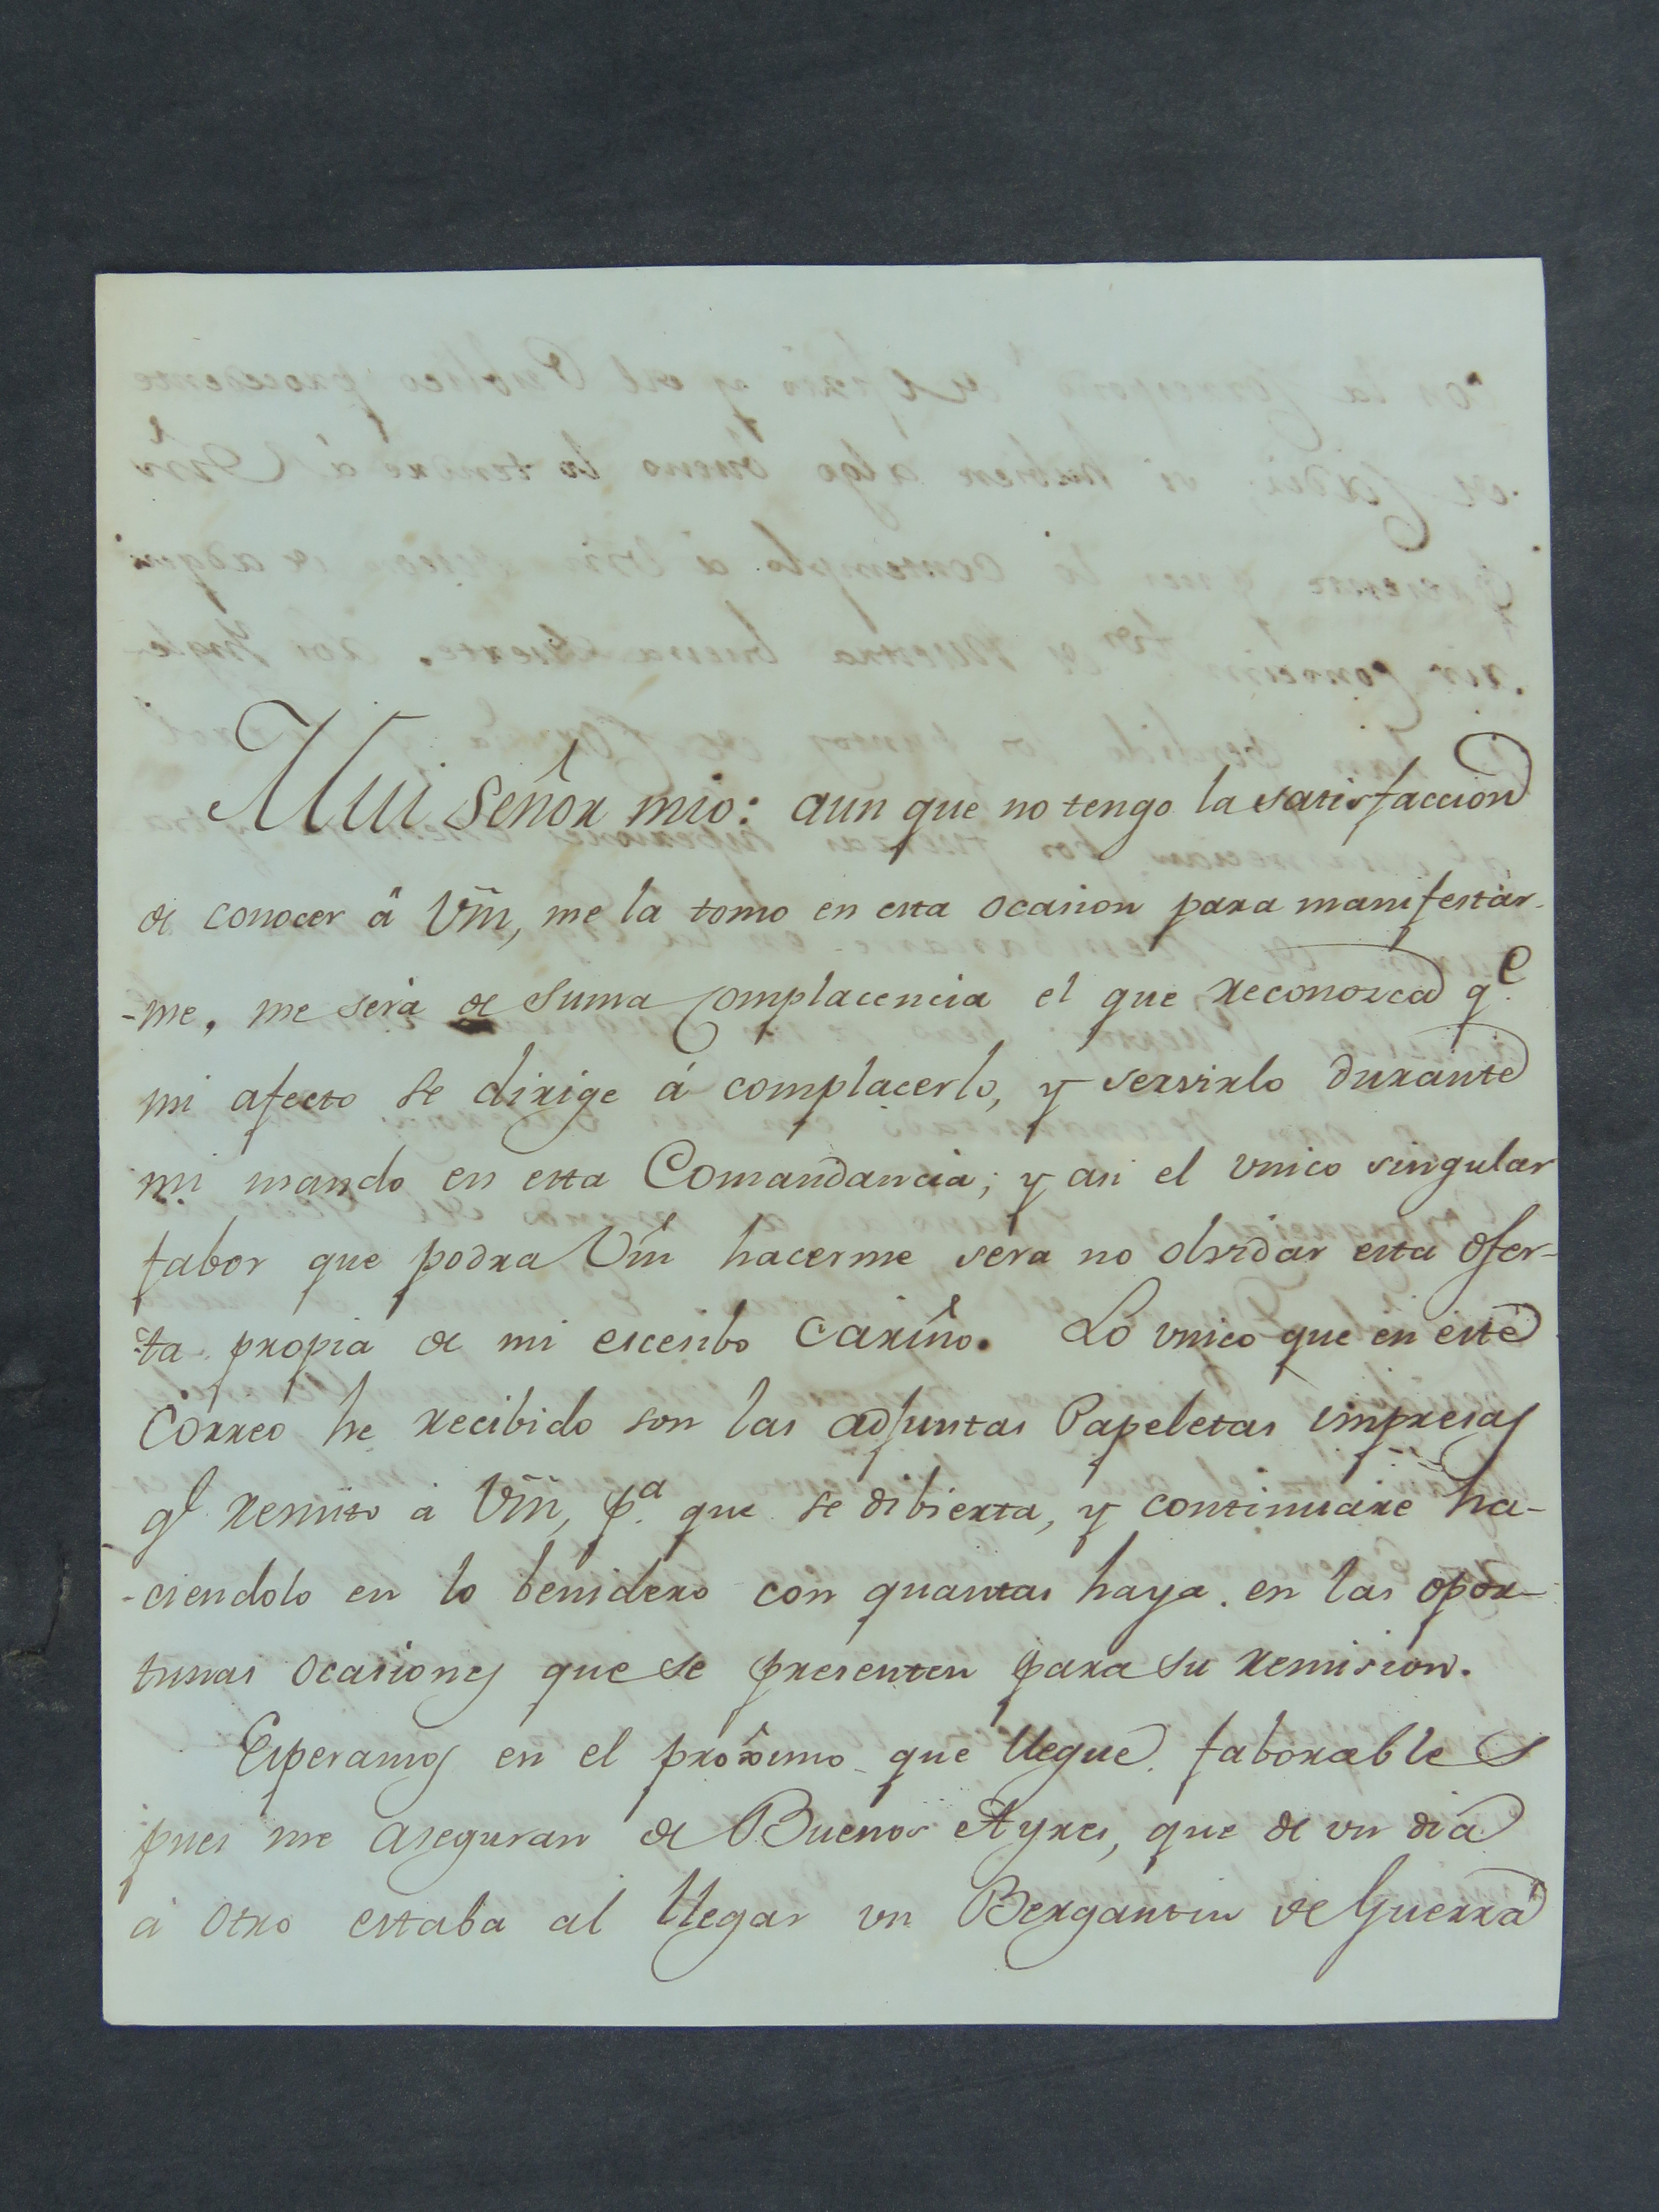 Mui Señor mio: aun que no tengo la satisfaccion
de conocer â Vm̃, me la tomo en esta ocasion para manifestar-
-me, me será de suma complacencia el que reconozca q.e
mi afecto se dirige á complacerlo, y servirlo durante
mi mando en esta Comandancia; y asi el vnico singular
fabor que podra Vm̃ hacerme sera no olvidar esta ofer-
-ta propia de mi escesibo cariño. Lo vnico que en este
Correo he recibido son las adjuntas Papeletas impresas
q.e remito á Vm̃, p.a que se dibierta, y continuare ha-
-ciendolo en lo benidero con quantas haya en las opor-
tunas ocasiones que se presenten para su remision.
Esperamos en el proximo que llegue faborables
pues me aseguran de Buenos Ayres, que de vn dia
á otro estaba al llegar vn Bergantin de Guerra